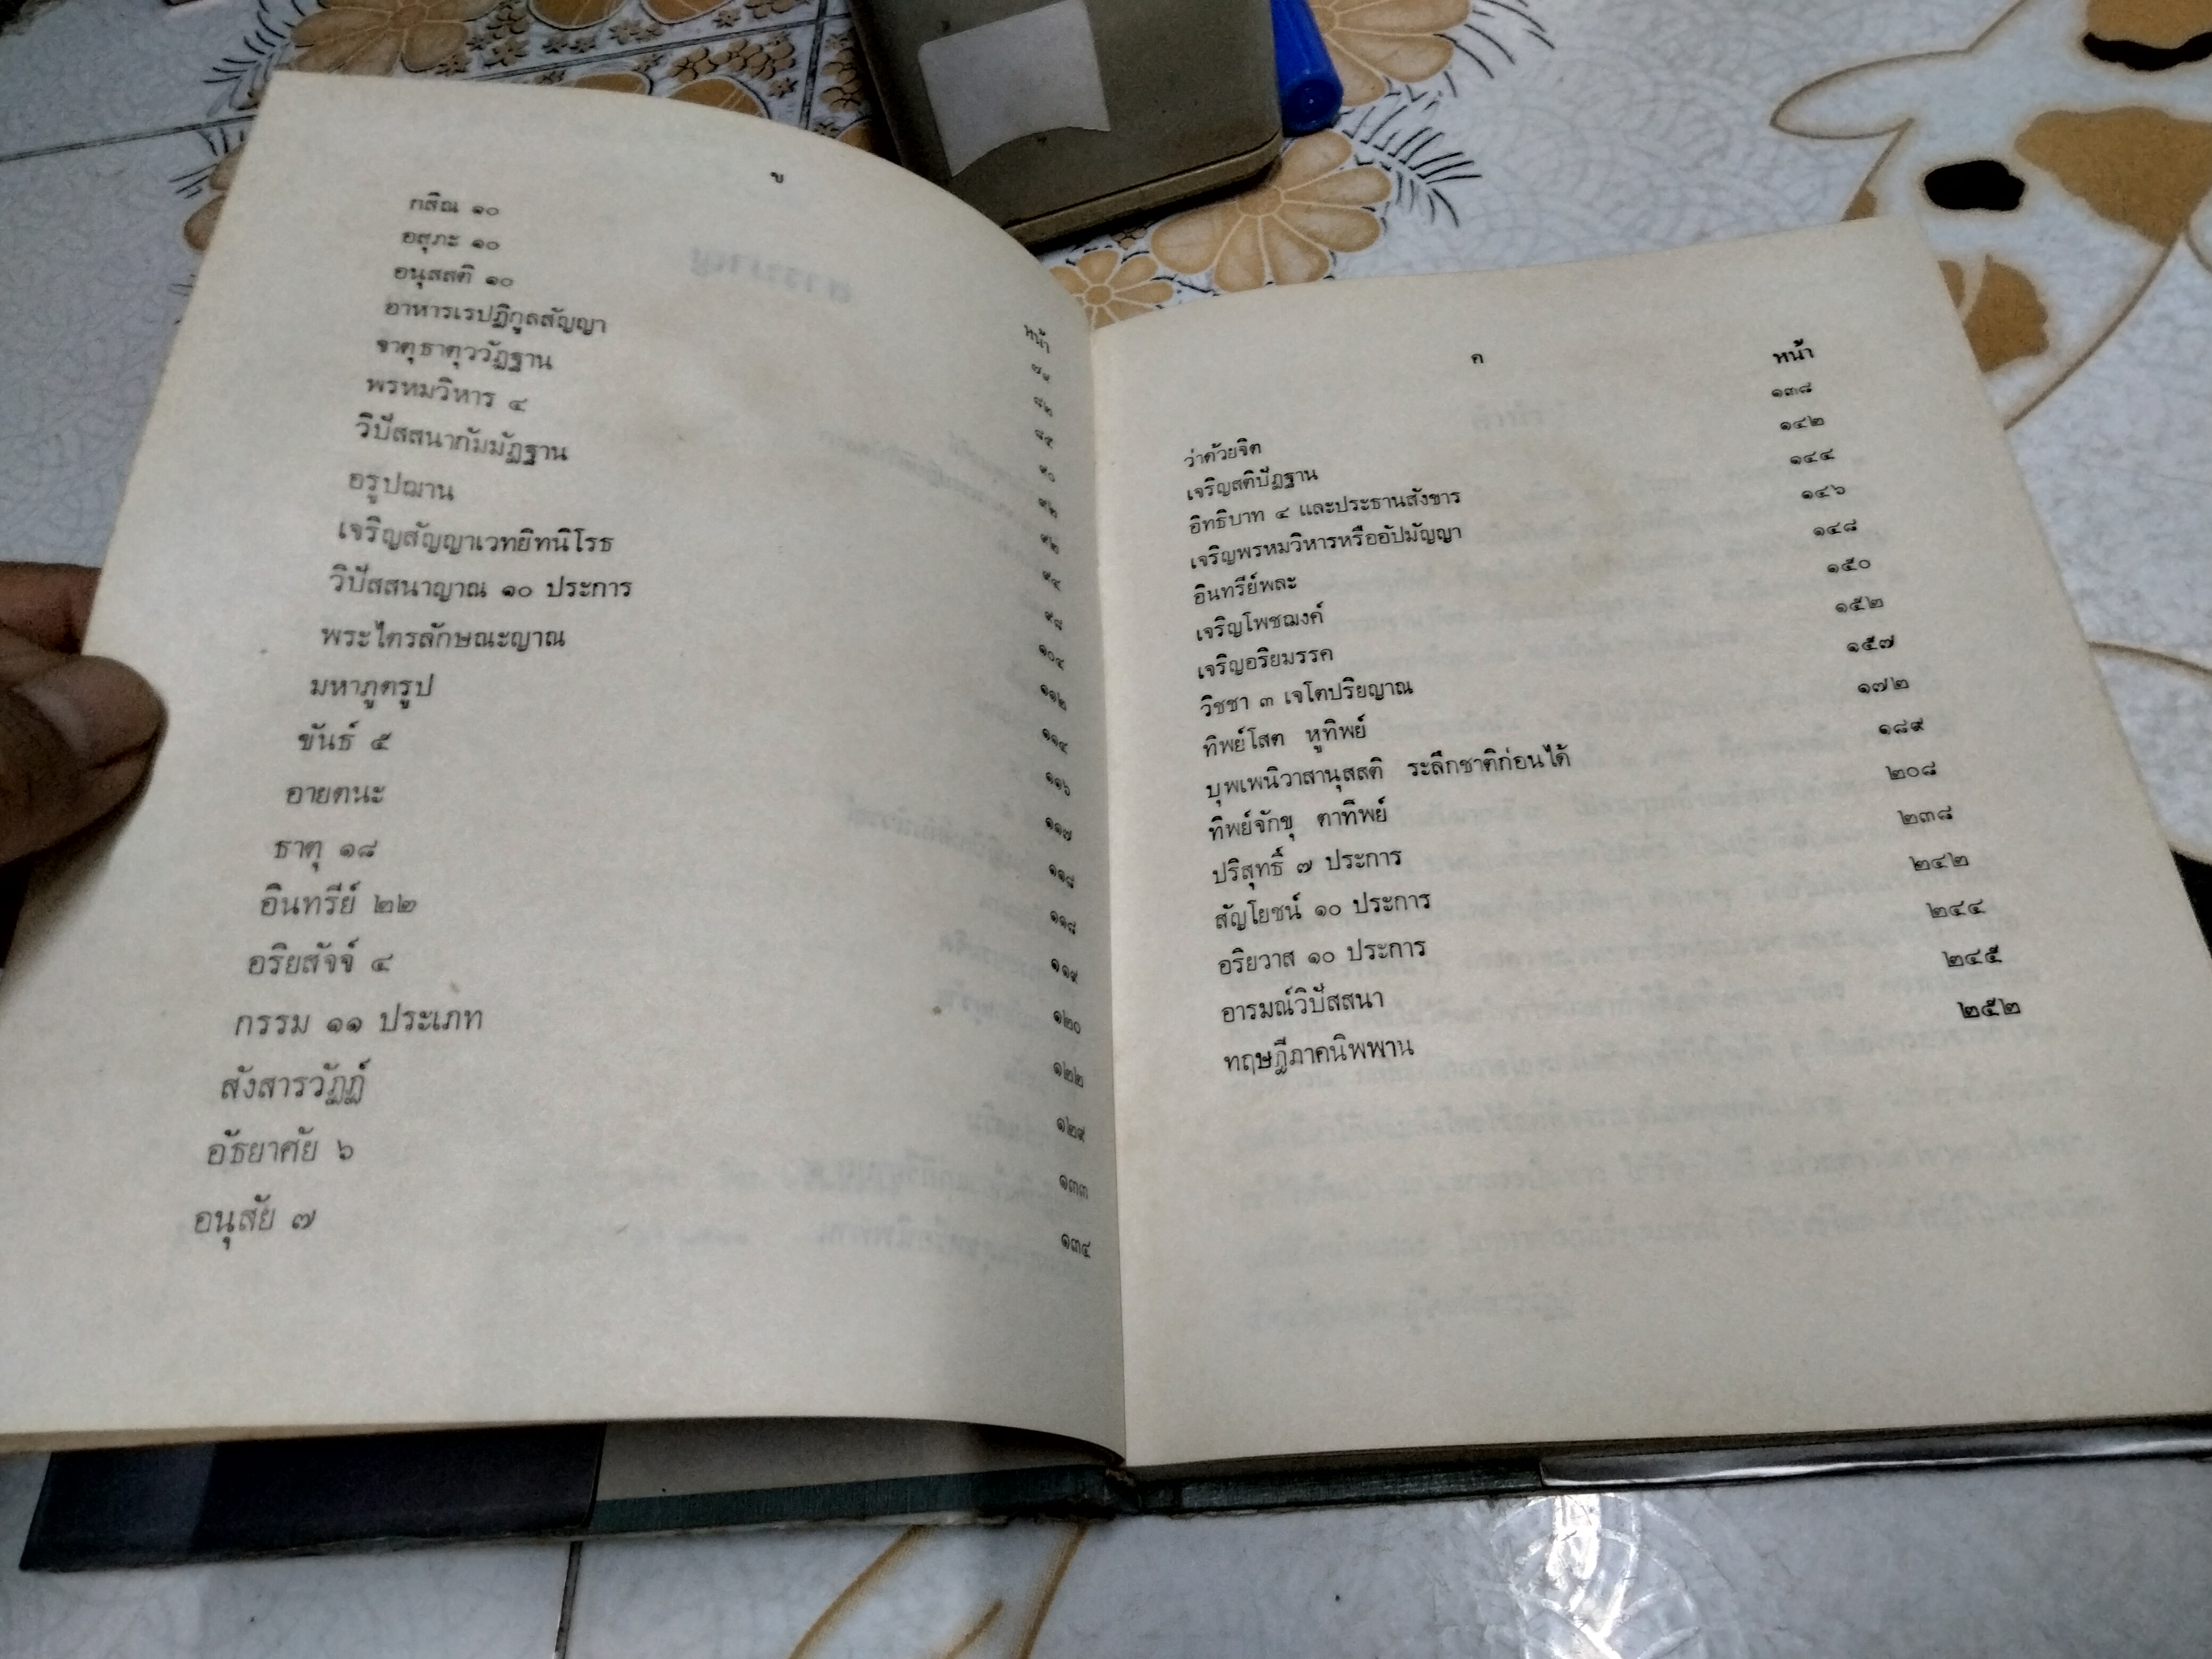 ข
หน้า
กสิณ ๑๐
อสุภะ ๑๐ ๘๒
อนุสสติ ๑๐ ๘๕
อาหารเรปฏิกูลสัญญา ๙๐
จาตุธาตุววัฏฐาน ๙๒
พรหมวิหาร ๔ ๙๒
วิปัสสนากัมมัฏฐาน ๙๔
อรูปฌาน ๙๘
เจริญสัญญาเวทยิทนิโรธ ๑๐๔
วิปัสสนาญาณ ๑๐ ประการ ๑๑๒
พระไตรลักษณะญาณ ๑๑๔
มหาภูตรูป ๑๑๖
ขันธ์ ๕ ๑๑๗
อายตนะ ๑๑๘
ธาตุ ๑๘ ๑๑๘
อินทรีย์ ๒๒ ๑๑๙
อริยสัจจ์ ๔ ๑๒๐
กรรม ๑๑ ประเภท ๑๒๒
สังสารวัฏฏ์ ๑๒๙
อัธยาศัย ๖ ๑๓๓
อนุสัย ๗ ๑๓๔
ค
หน้า
ว่าด้วยจิต ๑๓๘
เจริญสติปัฏฐาน ๑๔๒
อิทธิบาท ๔ และประธานสังขาร ๑๔๔
เจริญพรหมวิหารหรืออัปมัญญา ๑๔๖
อินทรีย์พละ ๑๔๘
เจริญโพชฌงค์ ๑๕๐
เจริญอริยมรรค ๑๕๒
วิชชา ๓ เจโตปริยญาณ ๑๕๗
ทิพย์โสต หูทิพย์ ๑๗๒
บุพเพนิวาสานุสสติ ระลึกชาติก่อนได้ ๑๘๙
ทิพย์จักขุ ตาทิพย์ ๒๐๘
ปริสุทธิ์ ๗ ประการ ๒๓๘
สัญโยชน์ ๑๐ ประการ ๒๔๒
อริยวาส ๑๐ ประการ ๒๔๔
อารมณ์วิปัสสนา ๒๔๕
ทฤษฎีภาคนิพพาน ๒๕๒